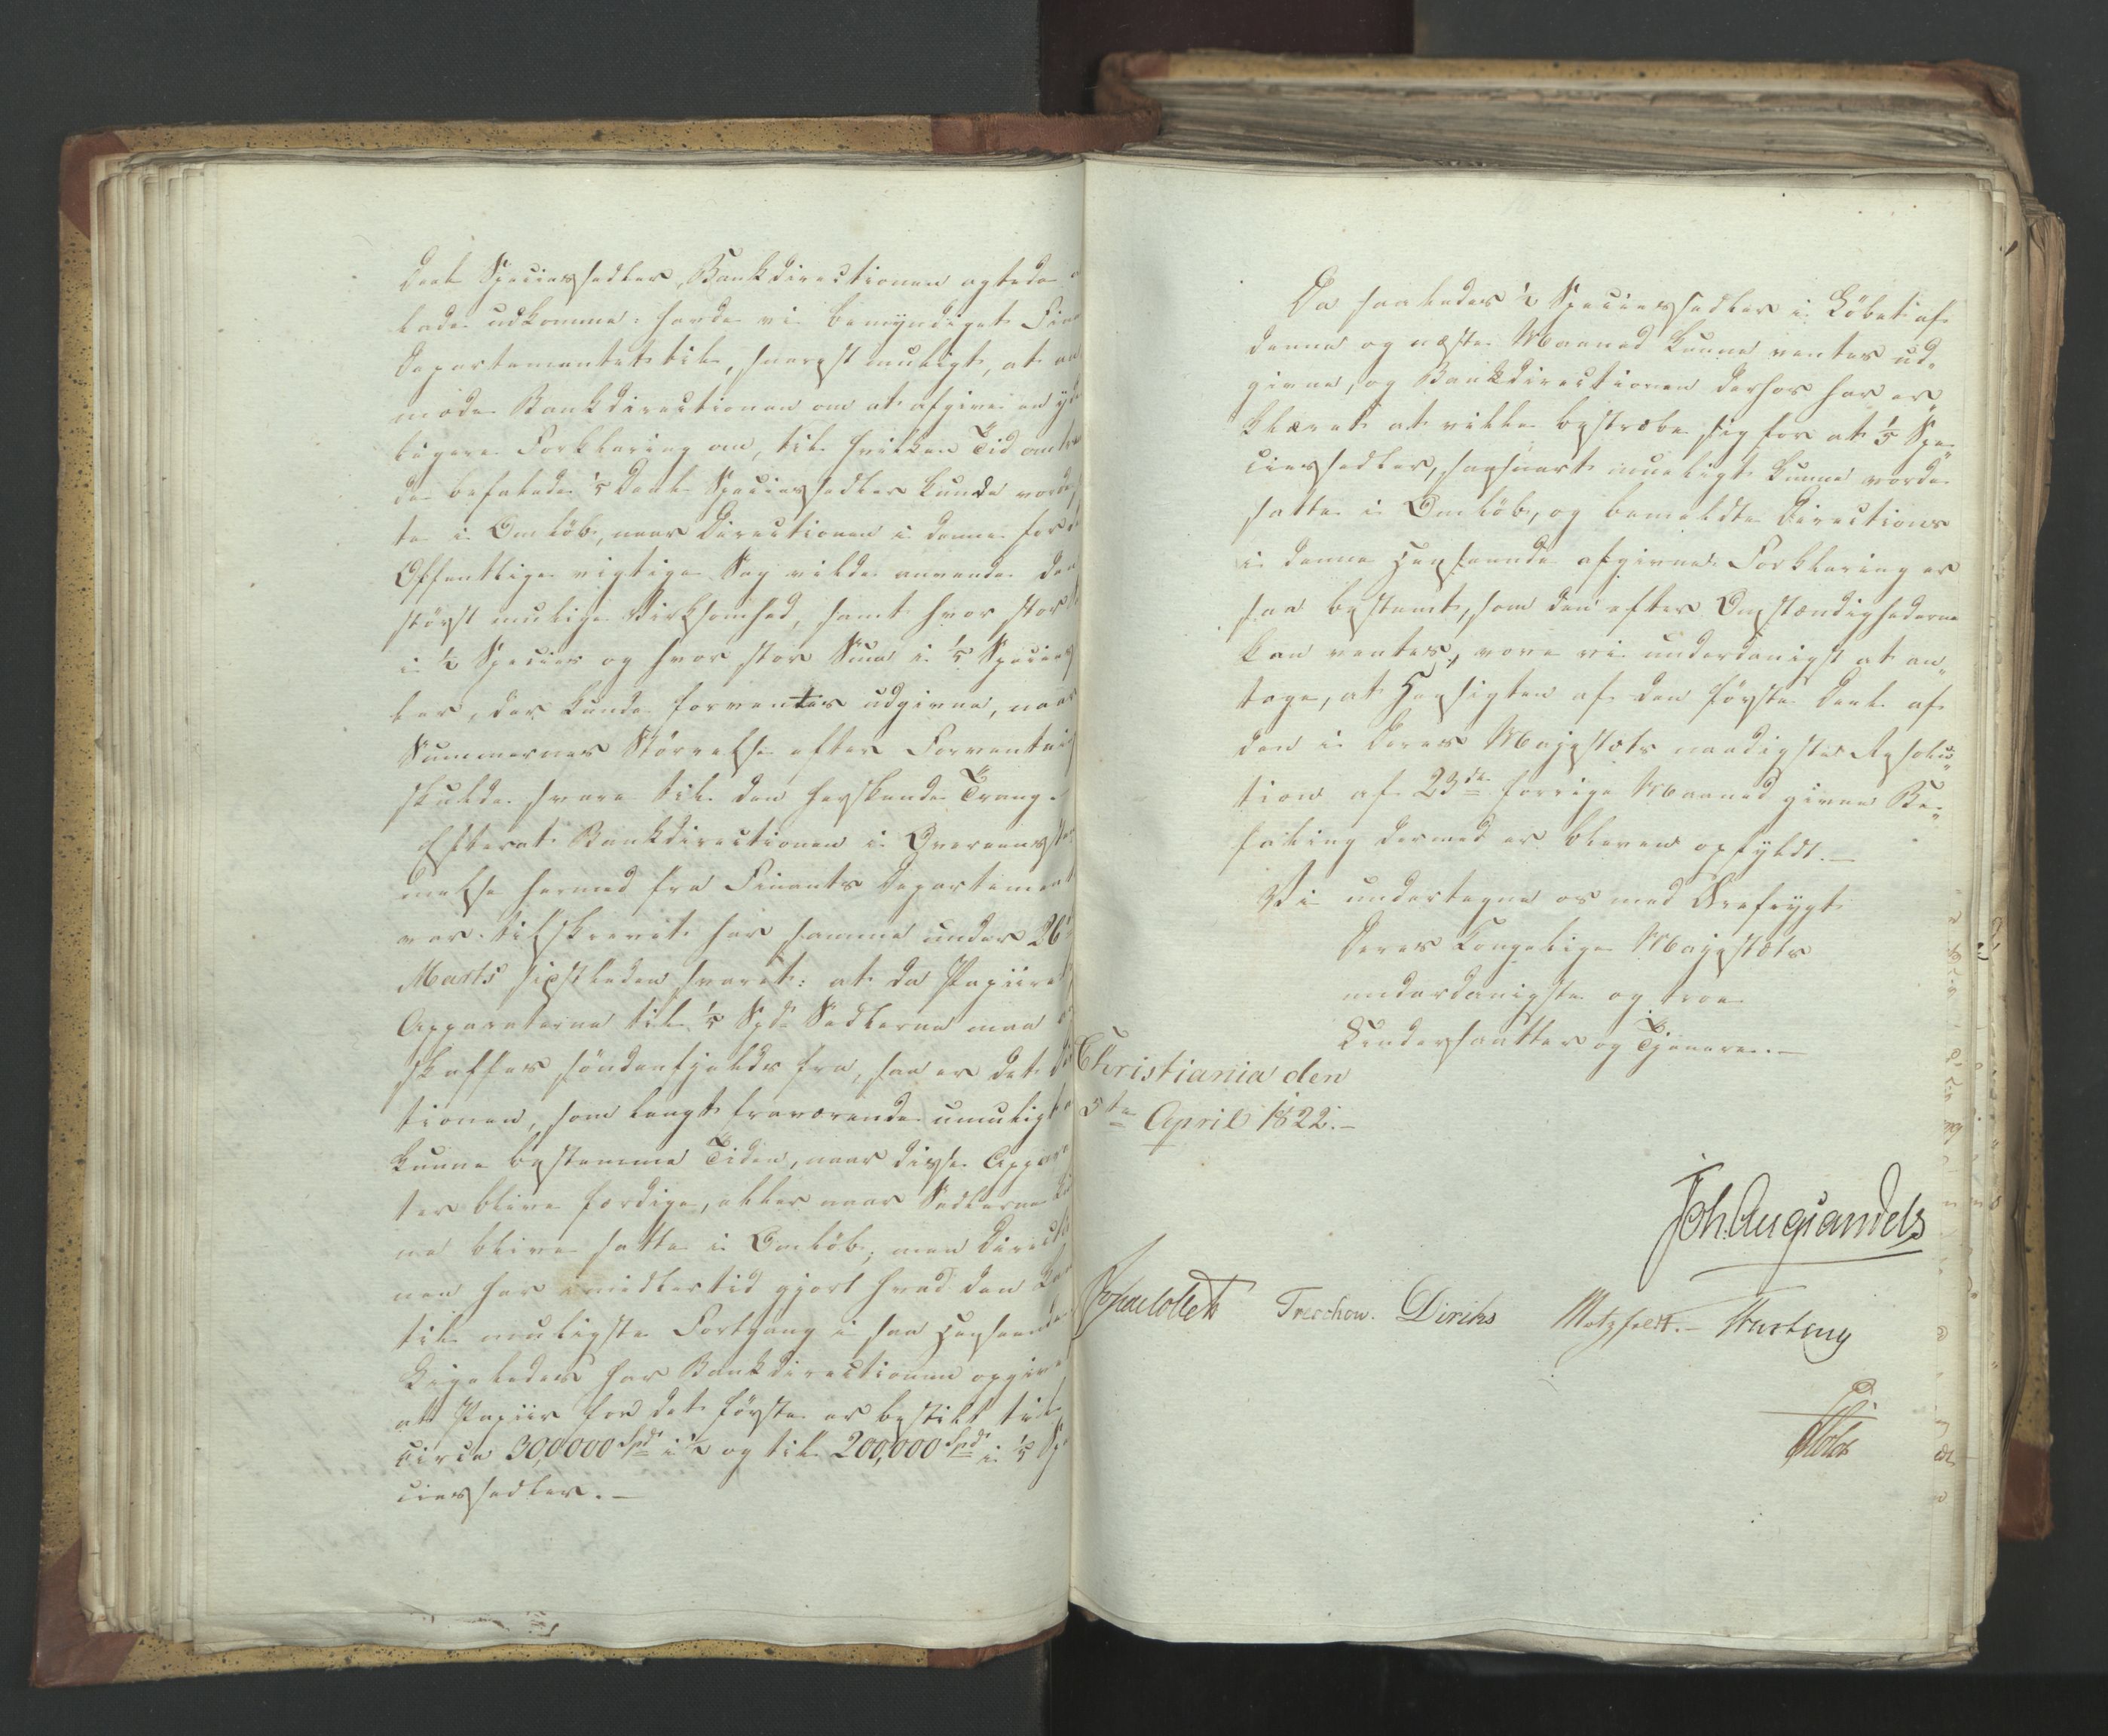 Deels Speciessedler, Bankdirectionen agtede
lade udkomme: havde vi bemyndiget Fin
Departementet til, snarest muligt, at an
mode Bankdirectionen om at afgive en yder
ligere Forklaring om, til hvilken Tid omtr
de befalede 1/5 Deels Speciessedler kunde vorde
te i Omløb, naar Directionen i denne for d
Offentlige vigtige Sag vilde anvende den
størst mulige Virksomhed, samt hvor stor S
i 1/2 Species og hvor stor Sum i 1/5 Species
ler, der kunde forventes udgivne, naar
Summernes Størrelse efter Forventning
skulde svare til den herskende Trang.
Efterat Bankdirectionen i Overeensstem
melse hermed fra Finants Departement
var tilskrevet har samme under 26
Marts sidstleden svaret: at da Papiiret
Apparaterne til 1/5 Spd. Sedlerne maa
skaffes søndenfjelds fra, saa er det
tionen, som langt fraværende umuligt
kunne bestemme Tiden, naar disse Appara
ter blive færdige, eller naar Sedlerne
ne blive satte i Omløb; men Directi
nen har imidlertid gjort hvad den
til muligste Fortgang i saa Henseende
Ligeledes har Bankdirectionen opgivet
at Papiir for det første er bestilt til
circa 300,000 Spd. i 1/2 og til 200,000 Spd. i 1/5 Sp
ciessedler. —
Da saaledes 1/2 Speciessedler i Løbet af
denne og næste Maaned kunne ventes ud-
givne, og Bankdirectionen derhos har er-
klæret at ville bestræbe sig for at 1/5 Spe-
ciessedler, saasnart mueligt kunne vorde
satte i Omløb, og bemeldte Directions
i denne Henseende afgivne Forklaring er
saa bestemt, som den efter Omstændighederne
kan ventes, vove vi underdanigst at an-
tage, at Hensigten af den første Deel af
den i Deres Majestæts naadigste Resolu-
tion af 23de forrige Maaned givne Be-
faling dermed er bleven opfyldt. —
Vi undertegne os med Ærefrygt
Deres Kongelige Majestæts
underdanigste og troe
Undersaatter og Tjenere. —
Christiania den
5te April 1822. —
Joh. Aug Sandels
Jonas Collett Treschow. Diriks Motzfeldt. — Krefting
Holst